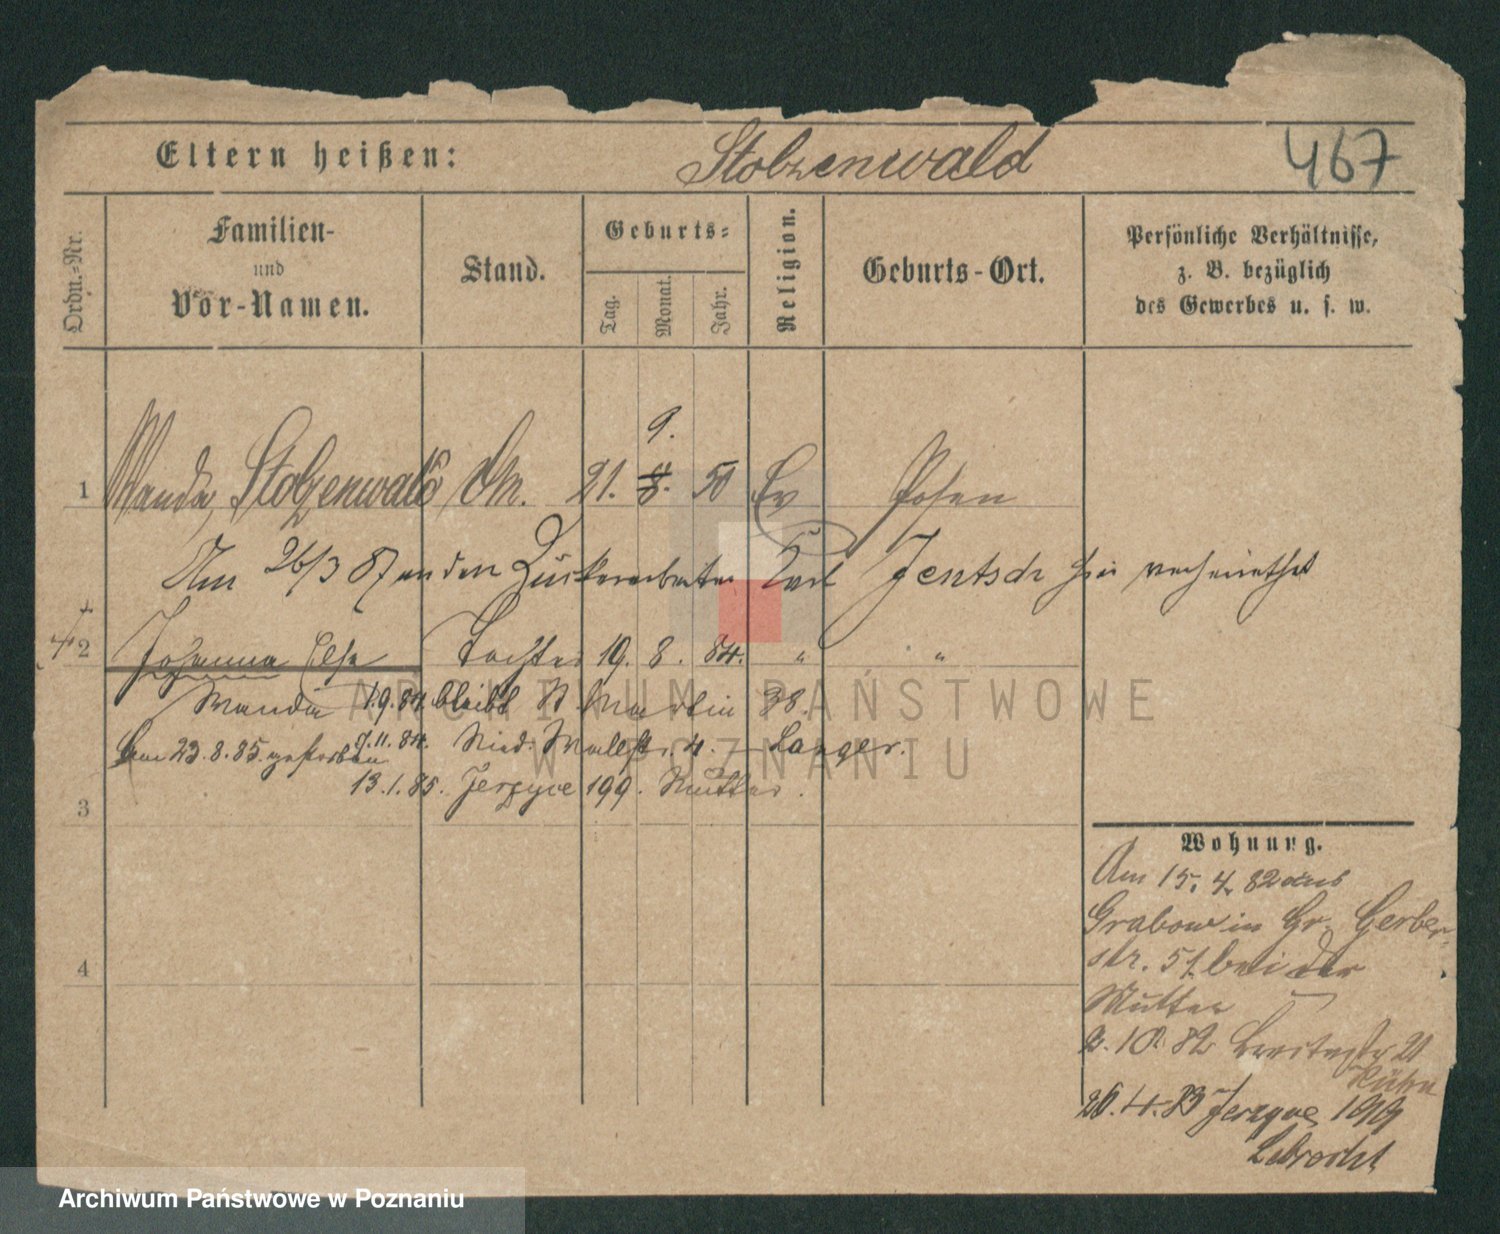 Eltern heißen: Stolzenwald 467
Ordn.-Nr.
Familien-
und
Vor-Namen.
Stand.
Geburts-
Tag.
Monat.
Jahr.
Religion.
Geburts-Ort.
Persönliche Verhältnisse,
z. B. bezüglich
des Gewerbes u. s. w.
9.
1 Wanda, Stolzenwald 21. 8. 50 Ev Posen
Am 26/3 87 an den Zuckerarbeiter Carl Jentsch hier verheirathet
† 2 Johanna Else Tochter 19. 8. 84. " "
Wanda 1.9.84. bleibt St. Martin 38.
Am 23.8.85. gestorben 7.11.84. Nied. Wallstr. 4. Langer.
13.1.85. Jerzyce 199. Mutter.
3
4
Wohnung.
Am 15. 4. 82 aus
Grabow in Gr. Gerber-
str. 51 bei der
Mutter
2. 10. 82 Breitestr 21
Kühn
26. 4. 83 Jerzyce 199
ARCHIWUM PAŃSTWOWE
W POZNANIU
Archiwum Państwowe w Poznaniu